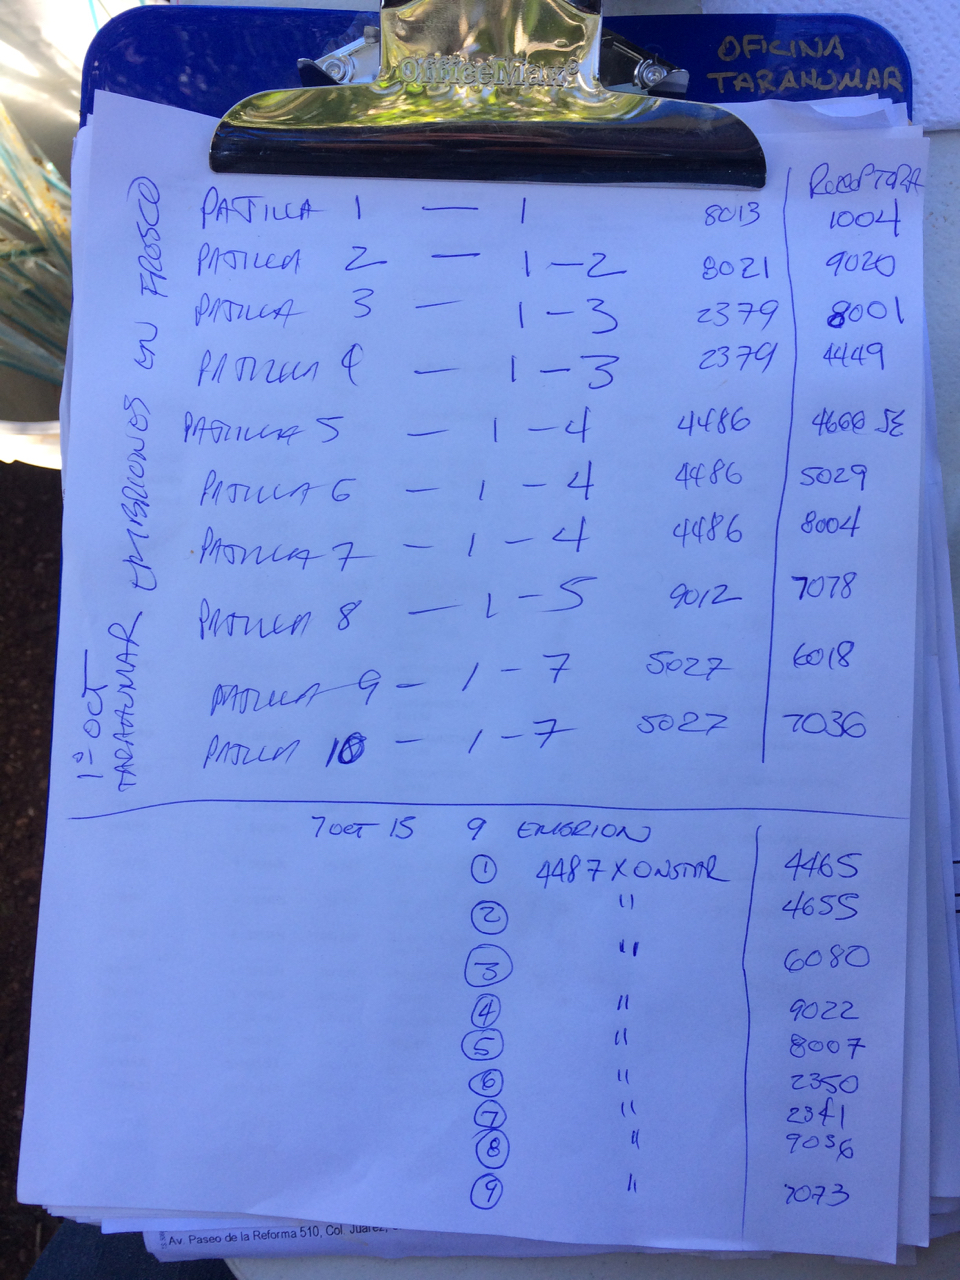 OfficeMax
OFICINA
TARAHUMAR
1º OCT
TARAHUMAR EMBRIONES EN FRESCO
RECEPTORA
PAJILLA 1 — 1 8013 1004
PAJILLA 2 — 1-2 8021 9020
PAJILLA 3 — 1-3 2379 8001
PAJILLA 4 — 1-3 2379 4449
PAJILLA 5 — 1-4 4486
PAJILLA 6 — 1-4 4486 5029
PAJILLA 7 — 1-4 4486 8004
PAJILLA 8 — 1-5 9012 7078
PAJILLA 9 — 1-7 5027 6018
PAJILLA 10 — 1-7 5027 7036
7 OCT 15 9 EMBRION
1 4487 X ONSTAR 4465
2 " 4655
3 " 6080
4 " 9022
5 " 8007
6 " 2350
7 " 2341
8 " 9036
9 " 7073
Av. Paseo de la Reforma 510, Col. Juárez,